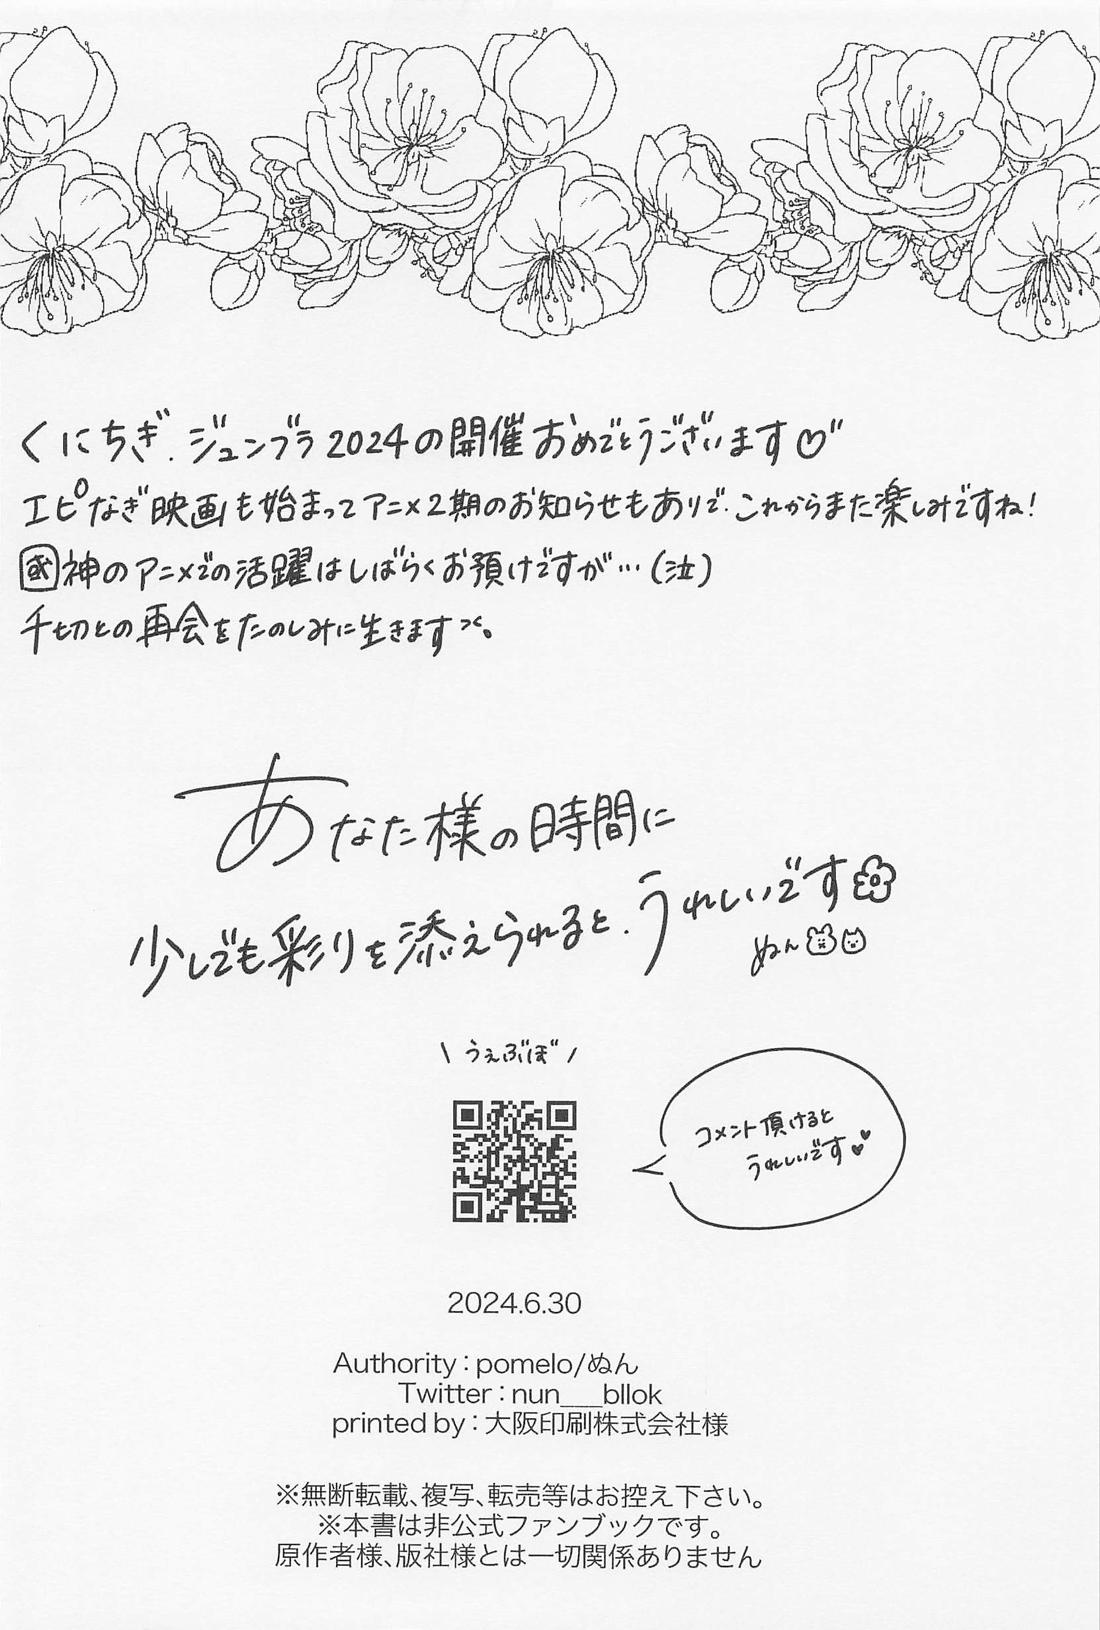 くにちぎ、ジュンブラ2024の開催おめでとうございます♡"
エピなぎ映画も始まってアニメ2期のお知らせもありで、これからまた楽しみですね!
國神のアニメでの活躍はしばらくお預けですが…(泣)
千切との再会をたのしみに生きます><。
あなた様の時間に
少しでも彩りを添えられると、うれしいです
ぬん
\ うぇぶぼ /
コメント頂けると
うれしいです
2024.6.30
Authority:pomelo/ぬん
Twitter:nun___bllok
printed by:大阪印刷株式会社様
※無断転載、複写、転売等はお控え下さい。
※本書は非公式ファンブックです。
原作者様、版社様とは一切関係ありません